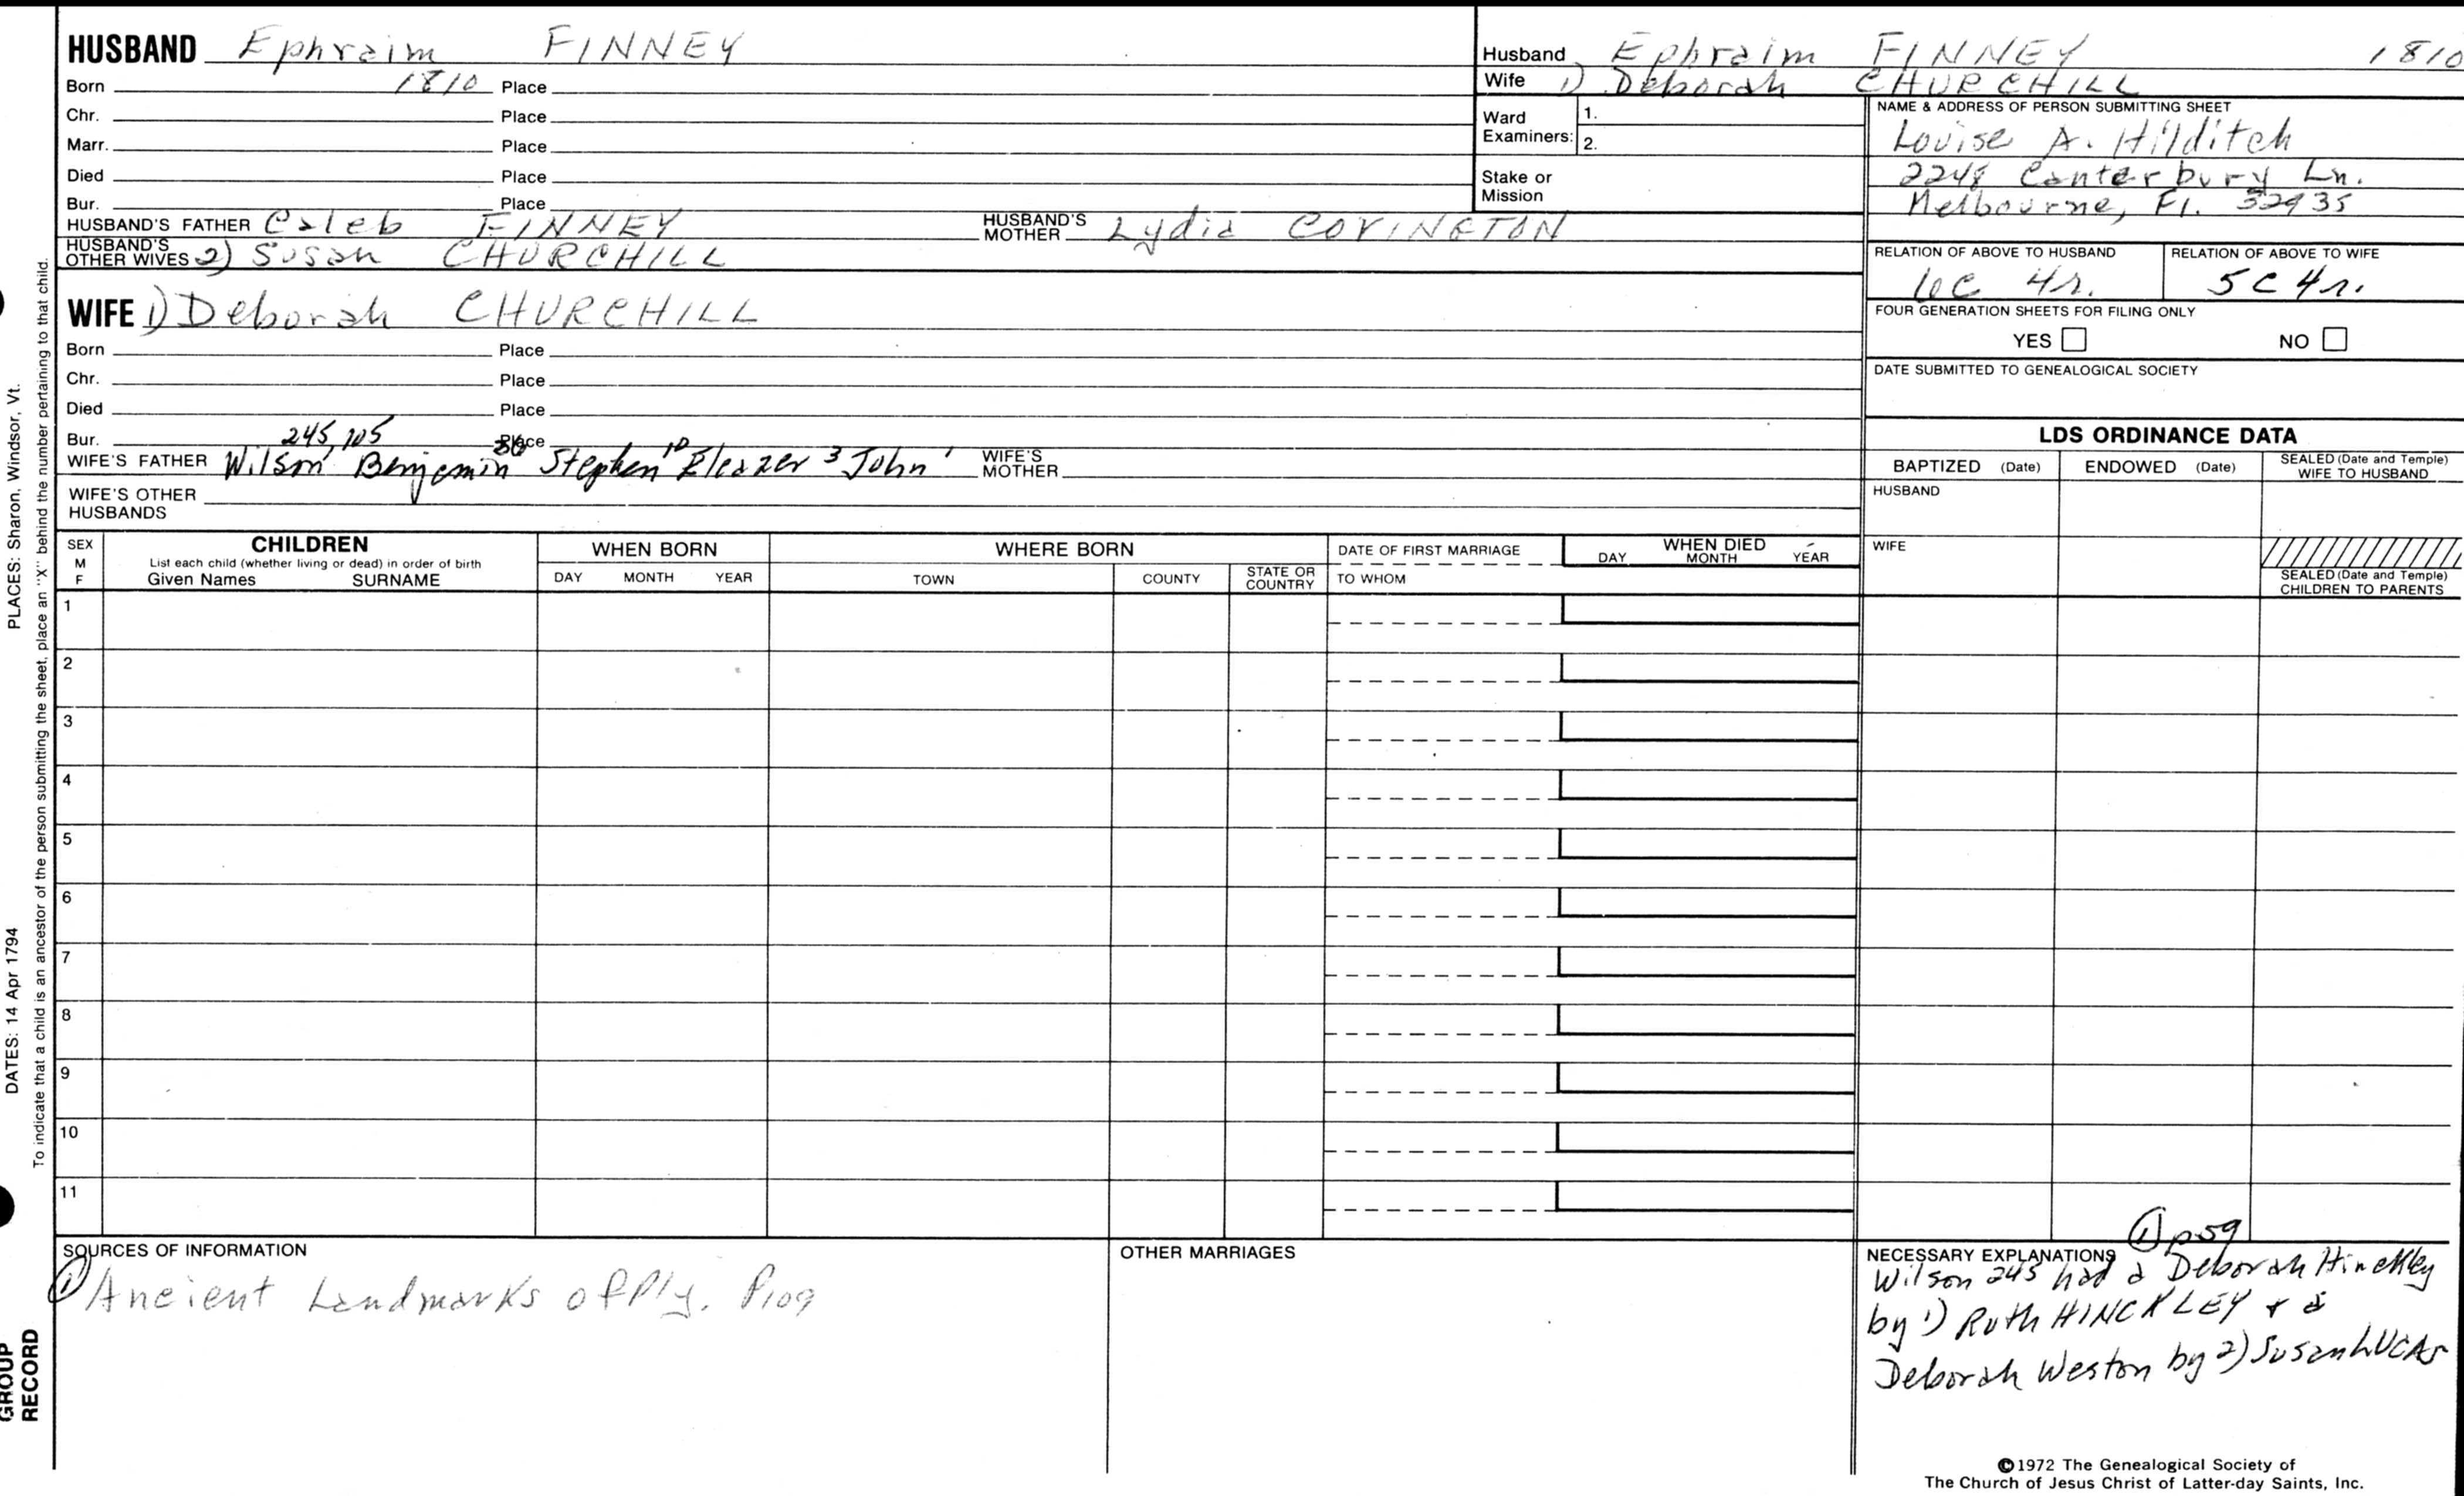 HUSBAND Ephraim FINNEY
Born 1810 Place
Chr. Place
Marr. Place
Died Place
Bur. Place
HUSBAND'S FATHER Caleb FINNEY HUSBAND'S MOTHER Lydia COVINGTON
HUSBAND'S OTHER WIVES 2) Susan CHURCHILL
WIFE 1) Deborah CHURCHILL
Born Place
Chr. Place
Died Place
Bur. Place
245, 105 36 10 3 1
WIFE'S FATHER Wilson Benjamin Stephen Eleazer John WIFE'S MOTHER
WIFE'S OTHER HUSBANDS
Husband Ephraim FINNEY 1810
Wife 1) Deborah CHURCHILL
Ward Examiners: 1.
2.
Stake or Mission
NAME & ADDRESS OF PERSON SUBMITTING SHEET
Louise A. Hilditch
2248 Canterbury Ln.
Melbourne, Fl. 32935
RELATION OF ABOVE TO HUSBAND RELATION OF ABOVE TO WIFE
6C 4r. 5C 4r.
FOUR GENERATION SHEETS FOR FILING ONLY
YES NO
DATE SUBMITTED TO GENEALOGICAL SOCIETY
LDS ORDINANCE DATA
BAPTIZED (Date) ENDOWED (Date) SEALED (Date and Temple) WIFE TO HUSBAND
HUSBAND
WIFE
SEALED (Date and Temple) CHILDREN TO PARENTS
SEX M F
CHILDREN
List each child (whether living or dead) in order of birth
Given Names SURNAME
WHEN BORN
DAY MONTH YEAR
WHERE BORN
TOWN COUNTY STATE OR COUNTRY
DATE OF FIRST MARRIAGE
TO WHOM
WHEN DIED
DAY MONTH YEAR
1
2
3
4
5
6
7
8
9
10
11
SOURCES OF INFORMATION
① Ancient Landmarks of Ply. P109
OTHER MARRIAGES
① p59
NECESSARY EXPLANATIONS
Wilson 245 had a Deborah Hinckley
by 1) Ruth HINCKLEY & a
Deborah Weston by 2) Susan LUCAS
©1972 The Genealogical Society of
The Church of Jesus Christ of Latter-day Saints, Inc.
PLACES: Sharon, Windsor, Vt.
DATES: 14 Apr 1794
To indicate that a child is an ancestor of the person submitting the sheet, place an "X" behind the number pertaining to that child.
GROUP
RECORD